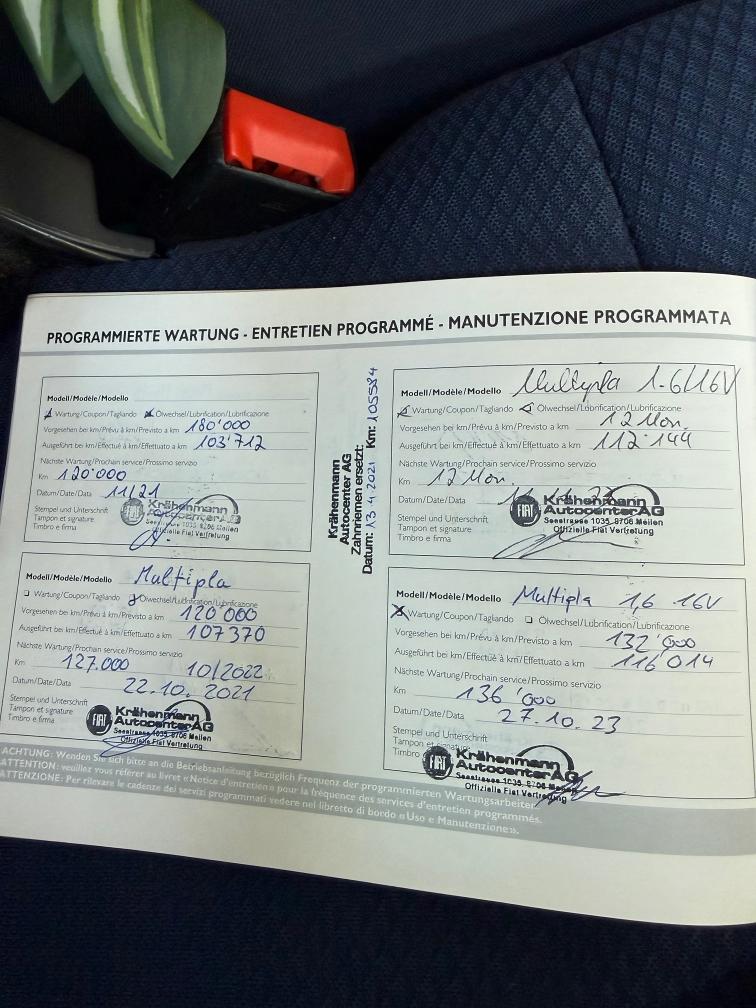 PROGRAMMIERTE WARTUNG - ENTRETIEN PROGRAMMÉ - MANUTENZIONE PROGRAMMATA
Modell/Modèle/Modello
Wartung/Coupon/Tagliando Ölwechsel/Lubrification/Lubrificazione
Vorgesehen bei km/Prévu à km/Previsto a km 180'000
Ausgeführt bei km/Effectué à km/Effettuato a km 103'712
Nächste Wartung/Prochain service/Prossimo servizio
Km 120'000
Datum/Date/Data 11/21
Stempel und Unterschrift
Tampon et signature
Timbro e firma
FIAT
Krähenmann
Autocenter AG
Seestrasse 1035 8706 Meilen
Offizielle Fiat Vertretung
Modell/Modèle/Modello Multipla
Wartung/Coupon/Tagliando Ölwechsel/Lubrification/Lubrificazione
Vorgesehen bei km/Prévu à km/Previsto a km 120'000
Ausgeführt bei km/Effectué à km/Effettuato a km 107370
Nächste Wartung/Prochain service/Prossimo servizio
Km 127.000 10/2022
Datum/Date/Data 22.10.2021
Stempel und Unterschrift
Tampon et signature
Timbro e firma
FIAT
Krähenmann
Autocenter AG
Seestrasse 1035, 8706 Meilen
Offizielle Fiat Vertretung
Krähenmann
Autocenter AG
Zahnriemen ersetzt:
Datum: 13.4.2021 Km: 105584
Modell/Modèle/Modello Multipla 1.6/16V
Wartung/Coupon/Tagliando Ölwechsel/Lubrification/Lubrificazione
Vorgesehen bei km/Prévu à km/Previsto a km 12 Mon.
Ausgeführt bei km/Effectué à km/Effettuato a km 112'144
Nächste Wartung/Prochain service/Prossimo servizio
Km 12 Mon.
Datum/Date/Data
Stempel und Unterschrift
Tampon et signature
Timbro e firma
FIAT
Krähenmann
Autocenter AG
Seestrasse 1035, 8706 Meilen
Offizielle Fiat Vertretung
Modell/Modèle/Modello Multipla 1,6 16V
Wartung/Coupon/Tagliando Ölwechsel/Lubrification/Lubrificazione
Vorgesehen bei km/Prévu à km/Previsto a km 132'000
Ausgeführt bei km/Effectué à km/Effettuato a km 116'014
Nächste Wartung/Prochain service/Prossimo servizio
Km 136'000
Datum/Date/Data 27.10.23
Stempel und Unterschrift
Tampon et signature
Timbro
FIAT
Krähenmann
Autocenter AG
Seestrasse 1035, 8706 Meilen
Offizielle Fiat Vertretung
ACHTUNG: Wenden Sie sich bitte an die Betriebsanleitung bezüglich Frequenz der programmierten Wartungsarbeiten.
ATTENTION: veuillez vous référer au livret «Notice d'entretien» pour la fréquence des services d'entretien programmés.
ATTENZIONE: Per rilevare le cadenze dei servizi programmati vedere nel libretto di bordo «Uso e Manutenzione».